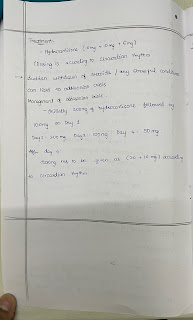 Treatment:
- Hydrocortisone (10mg + 5mg + 5mg)
(Dosing is according to circadian rhythm
Sudden withdrawl of steroids / any stressful conditions
can lead to addisonian crisis
Management of addisonian crisis -
- Initially 100mg of hydrocortisone followed by
100mg on Day 1
Day 2 - 200mg Day 3 - 100mg Day 4 - 50mg
After day 4
dosing has to be given as (20 + 10 mg) according
to circadian rhythm